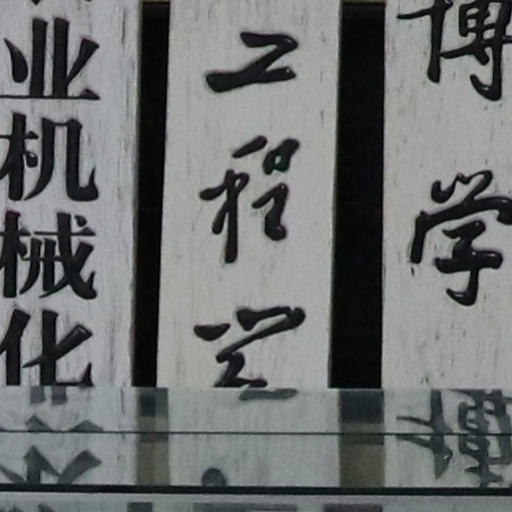 业机械化
工程学
博学